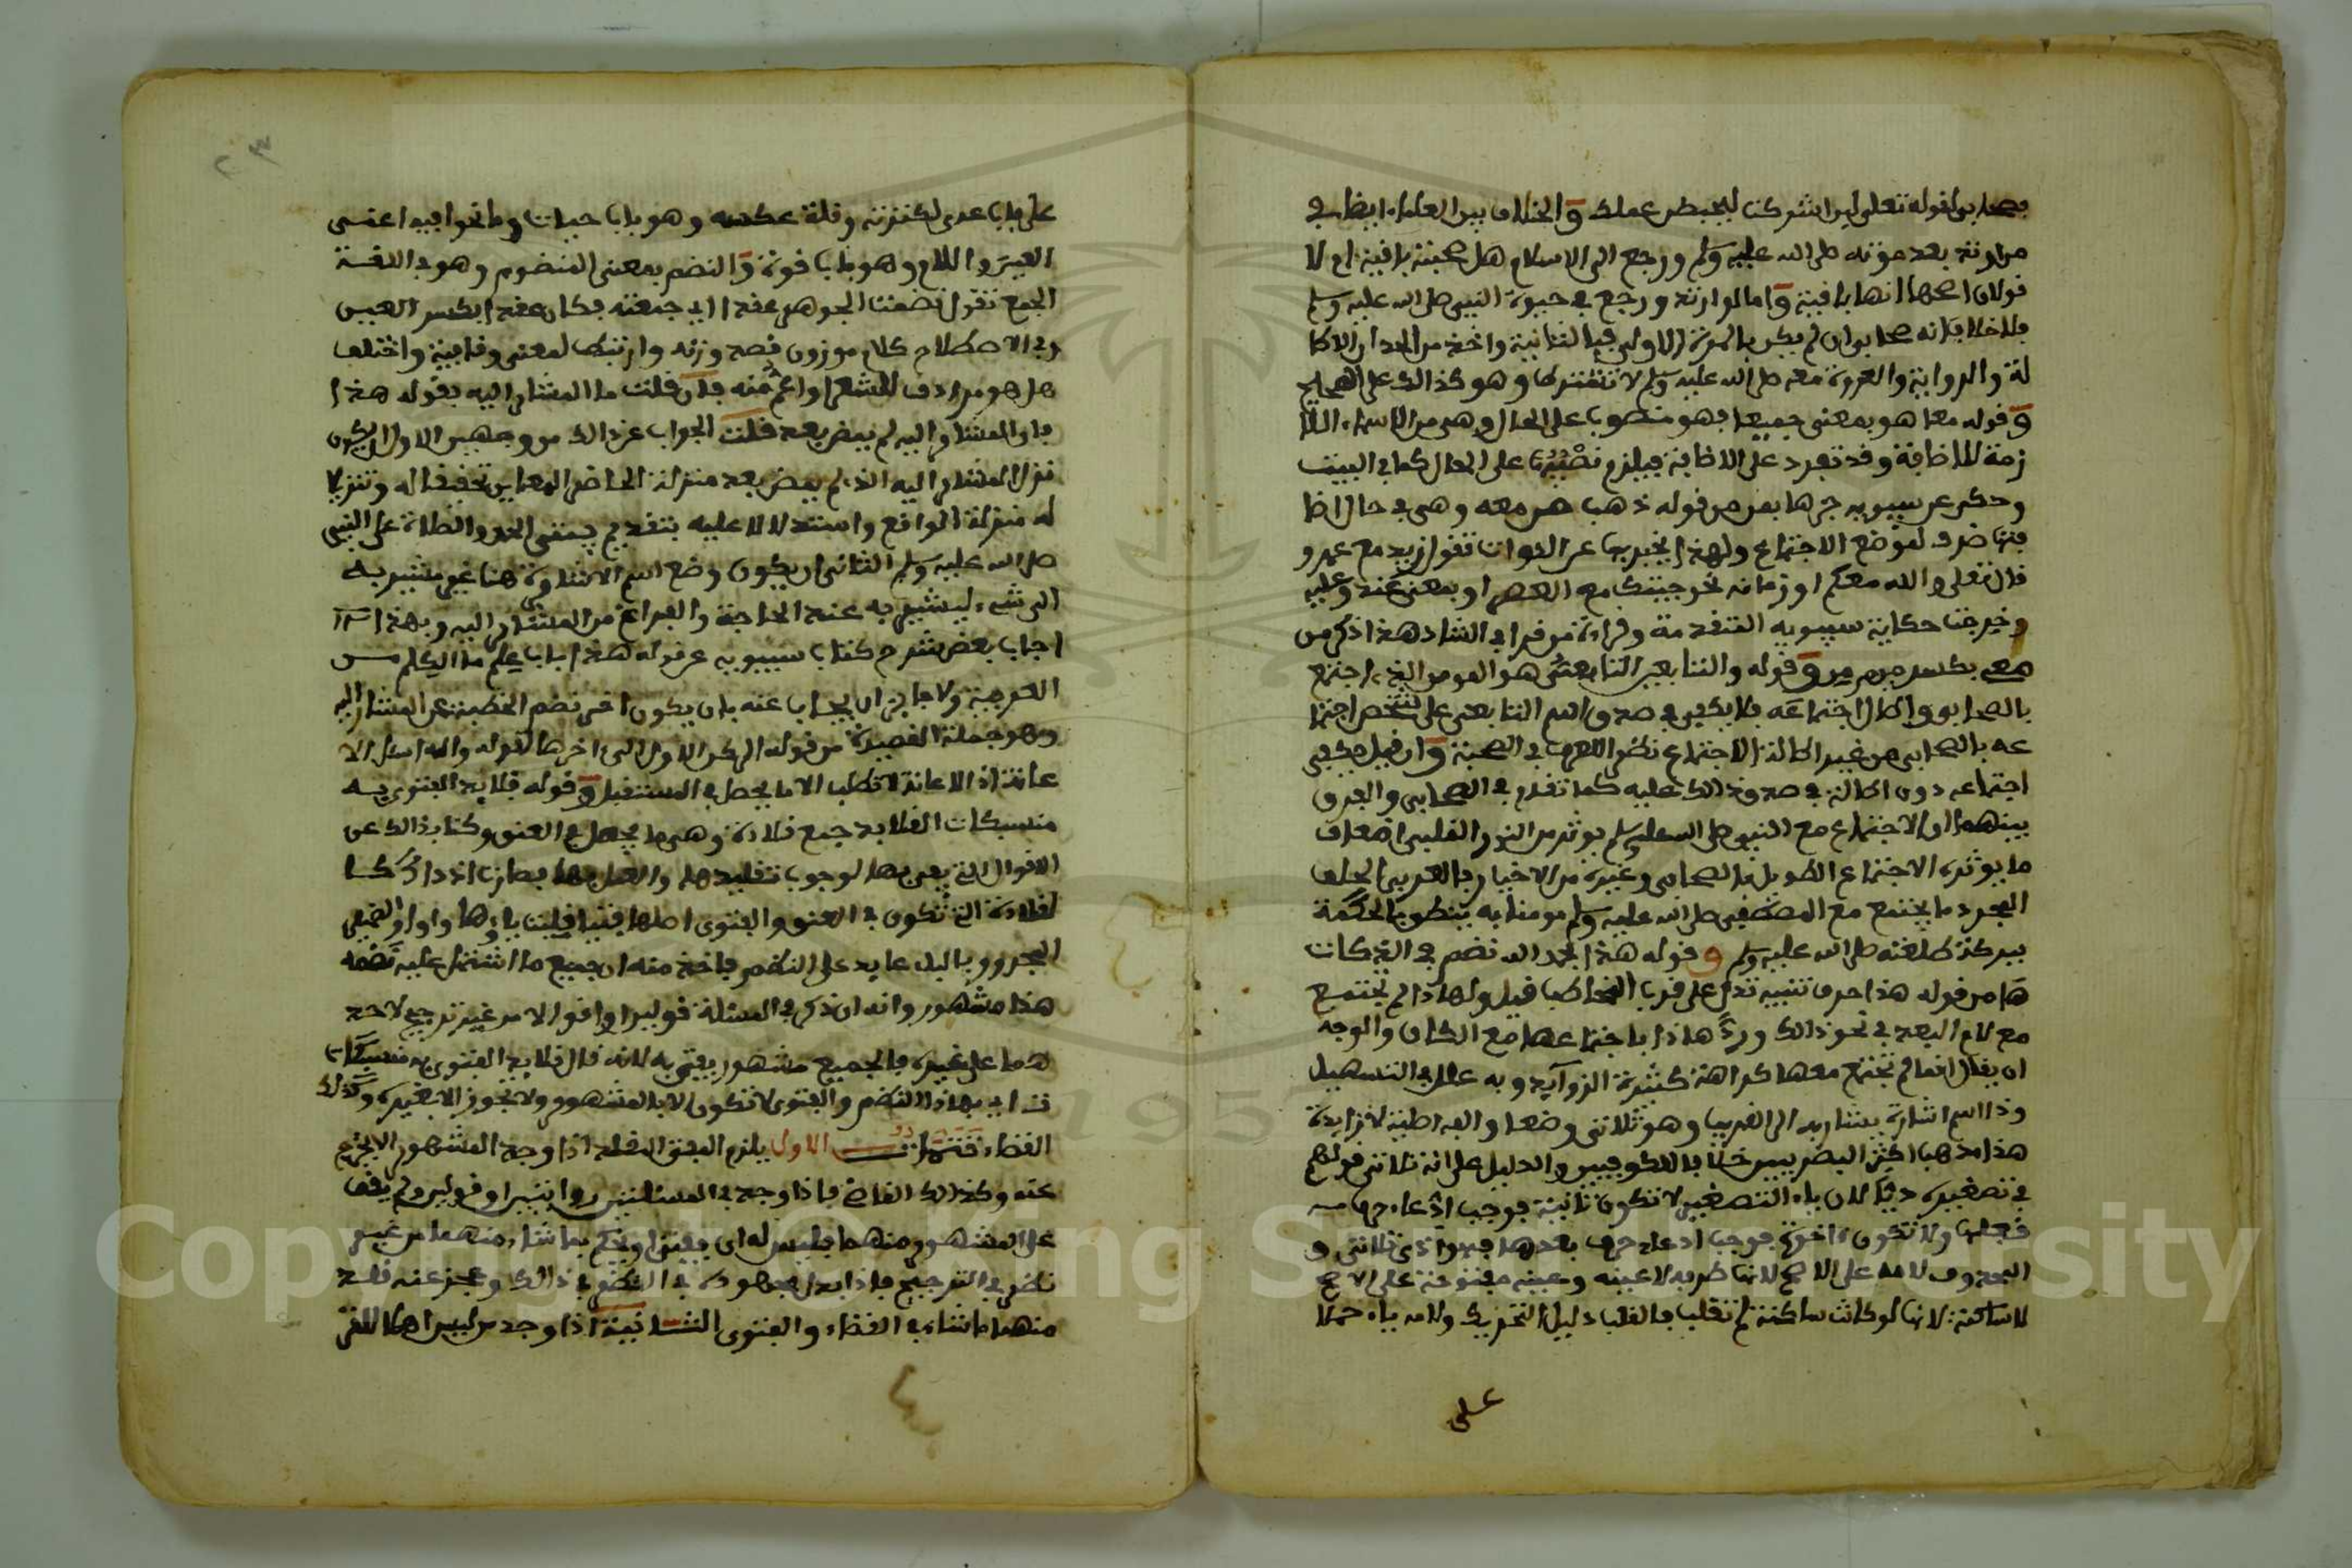 بصحابي لقوله تعلى لين اشركت ليحبطن عملك و الخلاف بين العلماء ايضا في
من ارتد بعد موته صلى الله عليه وسلم ورجع الى الاسلام هل صحبته باقية ام لا
قولان اصحها انها باقية و اما لو ارتد ورجع في حيوة النبي صلى الله عليه وسلم
فلا خلاف انه صحابي وان لم يكن بالمرة الاولى فبالثانية واخذ من الحد ان الاطا
لة والرواية والغزو معه صلى الله عليه وسلم لا تشترط وهو كذالك على الصحيح
و قوله معا هو بمعنى جميعا فهو منصوب على الحال وهي من الاسماء اللا
زمة للاضافة وقد تفرد على الاضافة فيلزم نصبها على الحال كما في البيت
وحكى عن سيبويه جرها بمن من قوله ذهب من معه وهي في حال اضا
فتها ظرف لموضع الاجتماع ولهذا يخبر بها عن الذوات تقول زيد مع عمرو
قال تعلى والله معكم او زمانه نحو جيتك مع العصر او بمعنى عند وعليه
وخرجت حكاية سيبويه المتقدمة وقراءة من قرا في الشاذ هذا ذكر من
معي بكسر ميم من و قوله والتابعين التابعي هو المومن الذي اجتمع
بالصحابي وطال اجتماعه فلا يكفي في صدق اسم التابعي على شخص اجتما
عه بالصحابي من غير اطالة الاجتماع نظرا للعرف في الصحبة و ان قيل يكفي
اجتماعه دون اطالة في صدق ذالك عليه كما تقدم في الصحابي والفرق
بينهما ان الاجتماع مع النبي صلى الله عليه وسلم يوثر من النور القلبي اضعاف
ما يوثره الاجتماع الطويل بالصحابي وغيره من الاخيار فالعربي الجلف
المجرد ما يجتمع مع المصطفى صلى الله عليه وسلم مومنا به ينطق بالحكمة
ببركة طلعته صلى الله عليه وسلم و قوله هذا بحمد الله نظم في الذكات
ها من قوله هذا حرف تنبيه تدل على قرب المخاطب قيل ولهاذا لم يجتمع
مع لام البعد في نحو ذالك ورد هاذا باجتماعها مع الكاف والوجه
ان يقال انما لم تجتمع معها كراهة كثرة الزوايد وبه علل في التسهيل
وذا اسم اشارة يشار به الى القريب وهو ثلاثي وضعا والفه اصلية لا زايدة
هذا مذهب اكثر البصريين خلافا للكوفيين والدليل على انه ثلاثي قولهم
في تصغيره ذيا لان ياء التصغير لا تكون ثانية فوجب ادعاء حرف
قبلها ولا تكون اخرة فوجب ادعاء حرف بعدها فهو اذن ثلاثي و
المحذوف لامه على الاصح لانها طرف لا عينه وعينه مفتوحة على الاصح
لا ساكنة لانها لو كانت ساكنة لم تقلب فالقلب دليل التحريك ولامه ياء حملا
على
على باب عدى لكثرته وقلة عكسه وهو باب حيات وما اتحد فيه اعنى
العين واللام وهو باب قوة و النظم بمعنى المنظوم وهو في اللغة
الجمع تقول نظمت الجوهر عقدا اي جمعته فكان عقدا بكسر العين
وفي الاصطلاح كلام موزون قصد وزنه وارتبط لمعنى وقافية واختلف
هل هو مرادف للشعر او اعم منه فان قلت ما المشار اليه بقوله هذا
فان المشار اليه لم يمض بعد قلت الجواب عن ذالك من وجهين الاول ان يكون
نزل المشار اليه الذي لم يمض بعد منزلة الحاضر المعاين تحقيقا له وتنزيلا
له منزلة الواقع واستدلالا عليه بتقديم بيتي الحمد والصلاة على النبي
صلى الله عليه وسلم الثاني ان يكون وضع اسم الاشارة هنا غير مشير به
الى شيء ليشير به عند الحاجة والفراغ من المشار اليه وبهذا
اجاب بعض شرح كتاب سيبويه عن قوله هذا باب علم ما الكلم من
العربية ولا جايز ان يجاب عنه بان يكون اخر نظم الخطبة عن المشار اليه
وهو جملة القصيدة من قوله الركن الاول الى اخرها لقوله والله اسئل الا
عانة اذ الاعانة لا تطلب الا ما يحصل في المستقبل و قوله قلايد الفتوى به
منسبكات القلايد جمع قلادة وهي ما يجعل في العنق وكنا بذالك عن
الاقوال التي يفتى بها لوجوب تقليدها والعمل بها فصارت اذ ذاك كا
لقلادة التي تكون في العنق والفتوى اصلها فتيا قلبت ياؤها واوا والضمير
المجرور بالباء عايد على النظم فاخذ منه ان جميع ما اشتمل عليه نظمه
هذا مشهور وانه ان ذكر في المسئلة قولين او اقوالا من غير ترجيح لاحد
هما على غيره فالجميع مشهور يفتى به لانه قال قلايد الفتوى به منسبكات
ت اي بهاذا النظم والفتوى لا تكون الا بالمشهور ولا تجوز الا بغيره وكذالك
القضاء تنبيهات الاول يلزم المفتي المقلد اذا وجد المشهور الا يخرج
عنه وكذالك القاضي فاذا وجد في المسئلتين روايتين او قولين ولم يقف
على المشهور منهما فليس له ان يفتي او يحكم بما شاء منهما من غير
نظر في الترجيح فاذا بذل مجهوده في النظر في ذالك وعجز عنه قلد
منهما ما شاء في القضاء والفتوى الثانية اذا وجد من ليس اهلا للتر